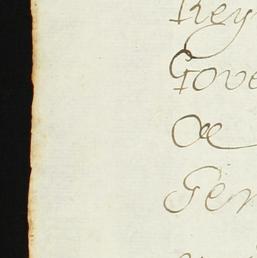 Rey
Gove
de
Gen